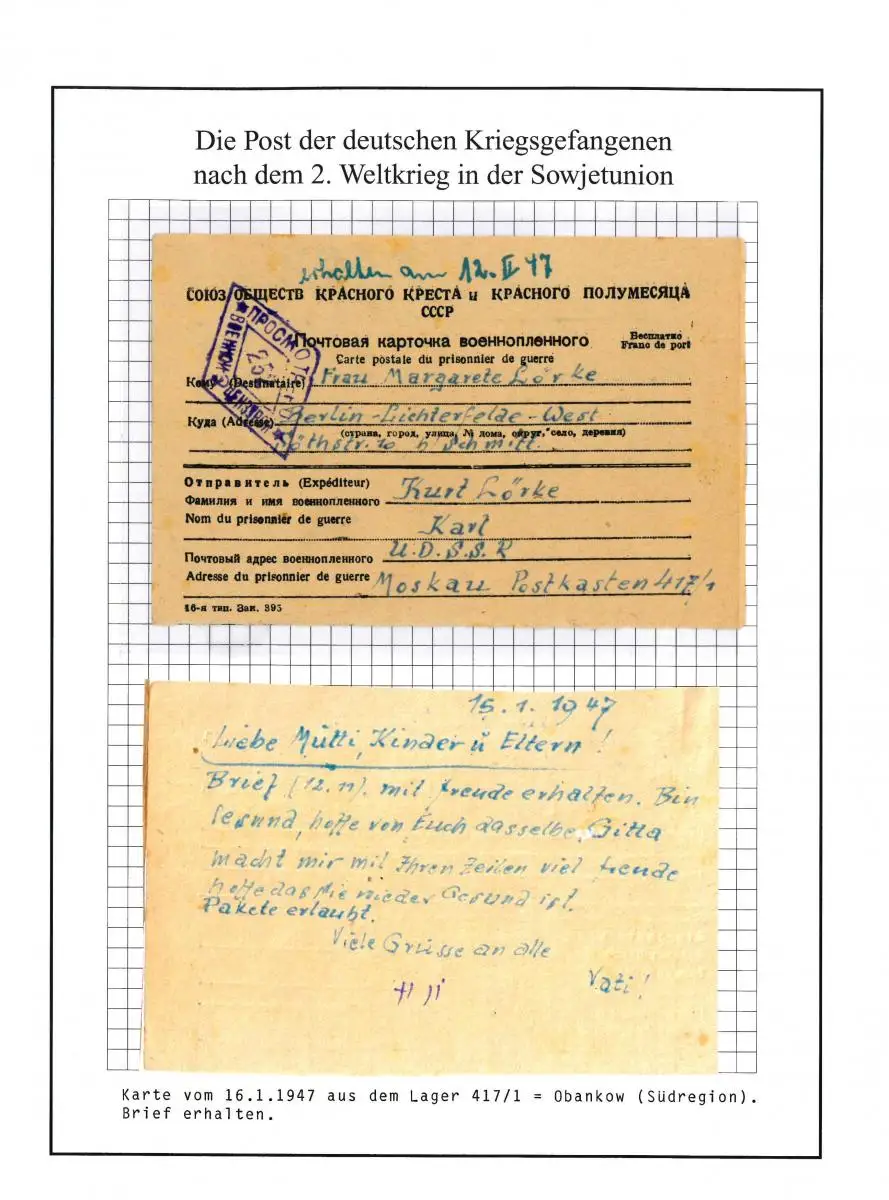 Die Post der deutschen Kriegsgefangenen
nach dem 2. Weltkrieg in der Sowjetunion
erhalten am 12. II 47
СОЮЗ ОБЩЕСТВ КРАСНОГО КРЕСТА и КРАСНОГО ПОЛУМЕСЯЦА
СССР
ПРОСМОТРЕНО
ВОЕННОЙ ЦЕНЗУРОЙ
Почтовая карточка военнопленного
Бесплатно
Franc de port
Carte postale du prisonnier de guerre
Кому (Destinataire) Frau Margarete Lörke
Куда (Adresse) Berlin-Lichterfelde-West
(страна, город, улица, № дома, округ, село, деревня)
10 b/ Schmitt.
Отправитель (Expéditeur)
Фамилия и имя военнопленного Kurt Lörke
Nom du prisonnier de guerre
Karl
Почтовый адрес военнопленного U.D.S.S.R
Adresse du prisonnier de guerre Moskau Postkasten 417/1
16-я тип. Зак. 395
15.1.1947
Liebe Mutti, Kinder ü Eltern!
Brief (12.11). mit freude erhalten. Bin
Gesund, hoffe von Euch dasselbe, Gitta
macht mir mit Ihren Zeilen viel freude
hoffe das Sie wieder Gesund ist.
Pakete erlaubt.
Viele Grüsse an alle
Vati!
Karte vom 16.1.1947 aus dem Lager 417/1 = Obankow (Südregion).
Brief erhalten.